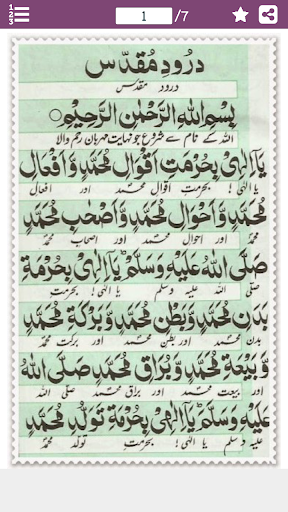 1 /7
درود مقدس
درود مقدس
بسم الله الرحمن الرحيم
اللہ کے نام سے شروع جو نہایت مہربان رحم والا
يَا اِلٰهِىْ بِحُرْمَتِ اَقْوَالِ مُحَمَّدٍ وَّ اَفْعَالِ
یا الٰہی! بحرمتِ اقوال محمد اور افعال
مُحَمَّدٍ وَّ اَحْوَالِ مُحَمَّدٍ وَّ اَصْحٰبِ مُحَمَّدٍ
محمد اور احوال محمد اور اصحاب محمد
صَلَّى اللهُ عَلَيْهِ وَسَلَّمَ يَا اِلٰهِىْ بِحُرْمَةِ
صلی اللہ علیہ وسلم یا الٰہی! بحرمتِ
بَدَنِ مُحَمَّدٍ وَّ بَطْنِ مُحَمَّدٍ وَّ بَرَكَةِ مُحَمَّدٍ
بدن محمد اور بطن محمد اور برکت محمد
وَّ بَيْعَةِ مُحَمَّدٍ وَّ بُرَاقِ مُحَمَّدٍ صَلَّى اللهُ
اور بیعت محمد اور براق محمد صلی اللہ
عَلَيْهِ وَسَلَّمَ يَا اِلٰهِىْ بِحُرْمَةِ تَوَلُّدِ مُحَمَّدٍ
علیہ وسلم یا الٰہی! بحرمتِ تولد محمد